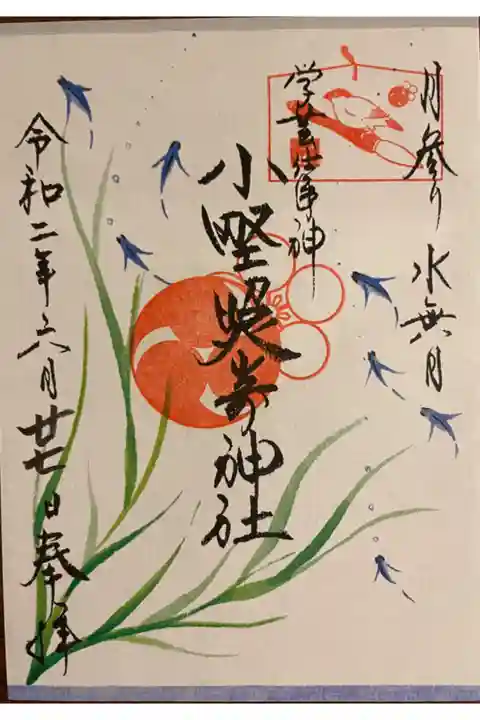 月参り 水無月
学芸仕事神
小野照崎神社
令和二年六月廿七日奉拝